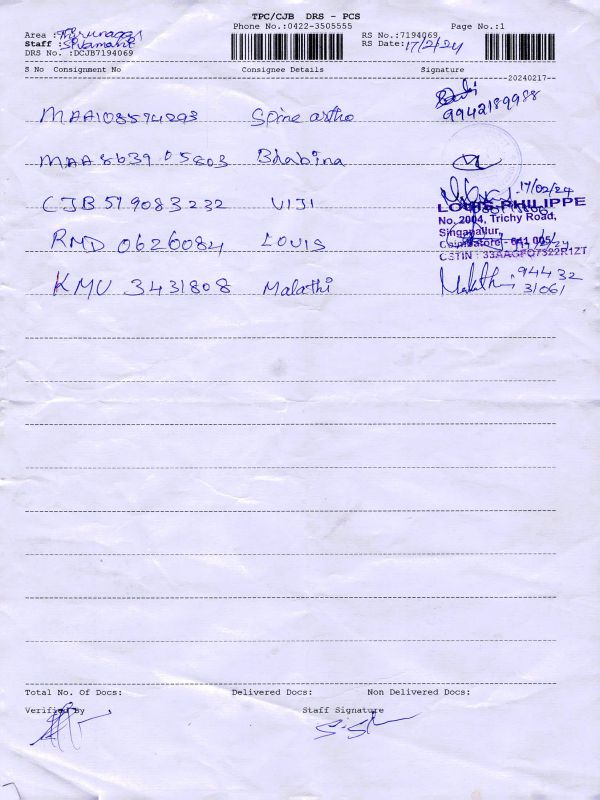 TPC/CJB DRS - PCS
Phone No.:0422-3505555 Page No.:1
Area : Thirunagar RS No.:7194069
Staff : Sivamani RS Date: 17/2/24
DRS No. :DCJB7194069
S No Consignment No Consignee Details Signature
20240217--
MAA108594293 Spine artho 9942189988
MAA863905803 Bhabina
CJB519083232 VIJI 17/02/24
LOUIS PHILIPPE
No. 2004, Trichy Road,
Singanallur,
RMD 0626084 LOUIS Coimbatore - 641 005
GSTIN : 33AAGFQ7322R1ZT
KMU 3431808 Malathi Malathi 94432
31061
Total No. Of Docs: Delivered Docs: Non Delivered Docs:
Verified By Staff Signature